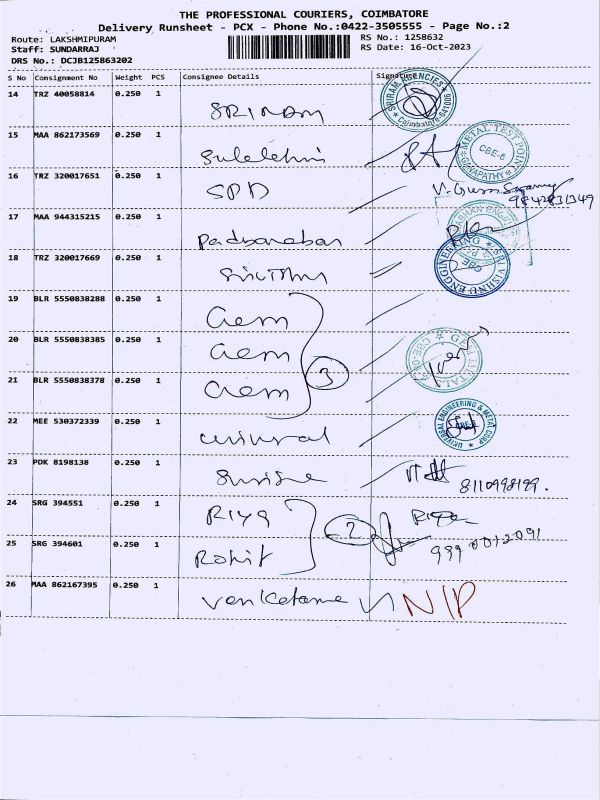 THE PROFESSIONAL COURIERS, COIMBATORE
Delivery Runsheet - PCX - Phone No.:0422-3505555 - Page No.:2
Route: LAKSHMIPURAM RS No.: 1258632
Staff: SUNDARRAJ RS Date: 16-Oct-2023
DRS No.: DCJB125863202
S No Consignment No Weight PCS Consignee Details Signature
14 TRZ 40058814 0.250 1 SRIRAM
SRIRAM AGENCIES Coimbatore-641006
15 MAA 862173569 0.250 1
METAL TEST POINT GANAPATHY CBE-6
16 TRZ 320017651 0.250 1 SPD
17 MAA 944315215 0.250 1 Padbanaban
18 TRZ 320017669 0.250 1
SRI VISHNU ENGINEERING CBE
19 BLR 5550838288 0.250 1 Gem
20 BLR 5550838385 0.250 1 Gem
3
21 BLR 5550838378 0.250 1 Gem
22 MEE 530372339 0.250 1 universal
UNIVERSAL ENGINEERING & METAL CORP
23 PDK 8198138 0.250 1
8110998199.
24 SRG 394551 0.250 1 Riya
2
25 SRG 394601 0.250 1 Rohit
26 MAA 862167395 0.250 1 Venkatame N/P